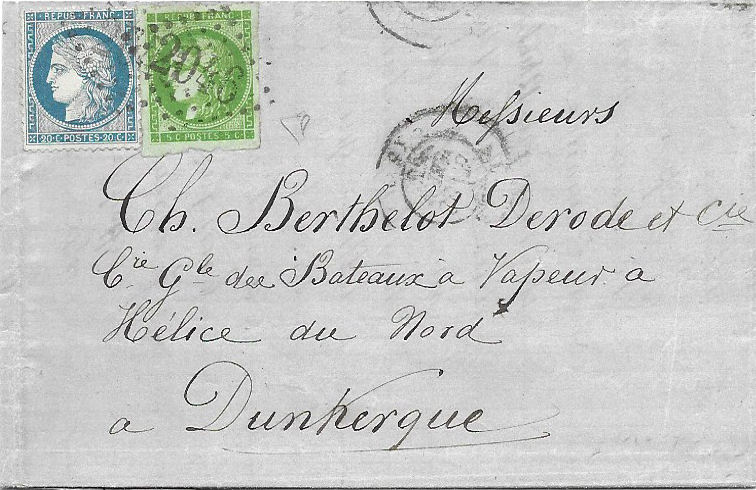 REPUB. FRANC.
REPUB. FRANC.
20·C·POSTES·20·C·
5·C·POSTES·5·C·
2046
Messieurs
Ch. Berthelot Derode et Cie
Cie Gle des Bateaux à Vapeur à
Hélice du Nord
à Dunkerque